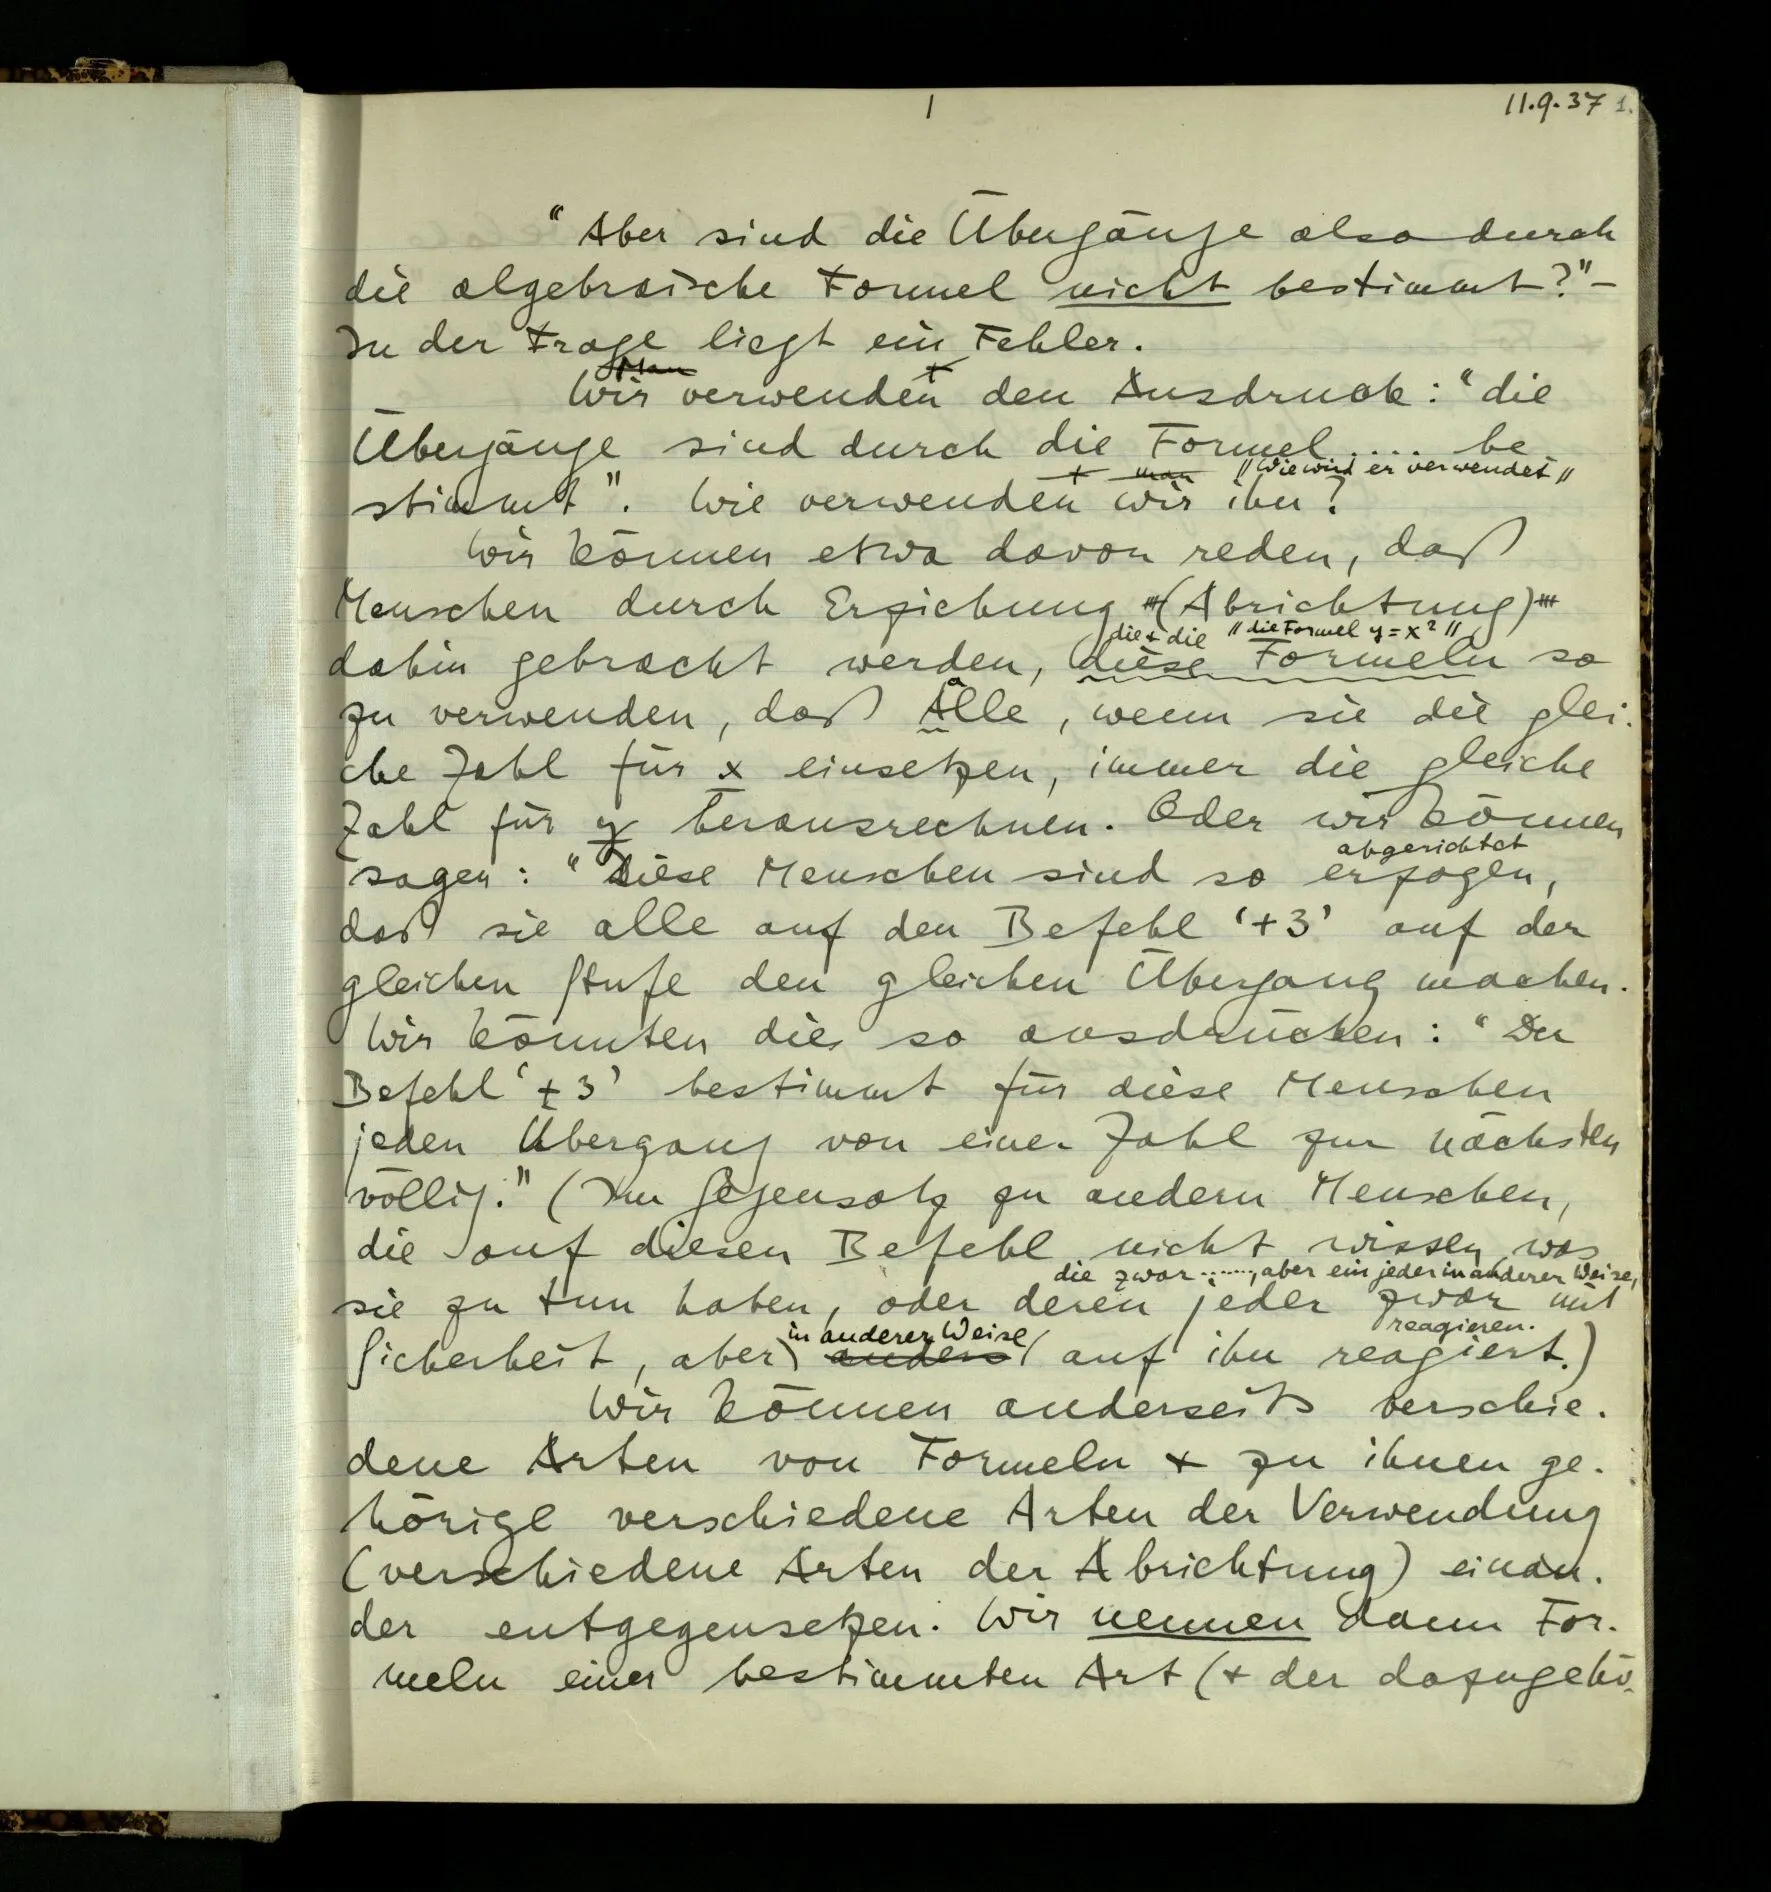 1
11.9.37 1.
"Aber sind die Übergänge also durch
die algebraische Formel nicht bestimmt?" –
In der Frage liegt ein Fehler.
Man t
Wir verwenden den Ausdruck: "die
Übergänge sind durch die Formel .... be
t man // Wie wird er verwendet //
stimmt". Wie verwenden wir ihn?
Wir können etwa davon reden, daß
Menschen durch Erziehung (Abrichtung)
die & die // die Formel y = x² //
dahin gebracht werden, diese Formeln so
a
zu verwenden, daß Alle, wenn sie die glei-
che Zahl für x einsetzen, immer die gleiche
Zahl für y herausrechnen. Oder wir können
abgerichtet
sagen: "Diese Menschen sind so erzogen,
daß sie alle auf den Befehl '+3' auf der
gleichen Stufe den gleichen Übergang machen.
Wir könnten dies so ausdrücken: "Der
Befehl '+3' bestimmt für diese Menschen
jeden Übergang von einer Zahl zur nächsten
völlig." (Im Gegensatz zu andern Menschen,
die auf diesen Befehl nicht wissen, was
die zwar ......., aber ein jeder in anderer Weise,
sie zu tun haben, oder deren jeder zwar mit
in anderer Weise reagieren.
Sicherheit, aber anders auf ihn reagiert.)
Wir können anderseits verschie-
dene Arten von Formeln & zu ihnen ge-
hörige verschiedene Arten der Verwendung
(verschiedene Arten der Abrichtung) einan-
der entgegensetzen. Wir nennen dann For-
meln einer bestimmten Art (& der dazugehö-